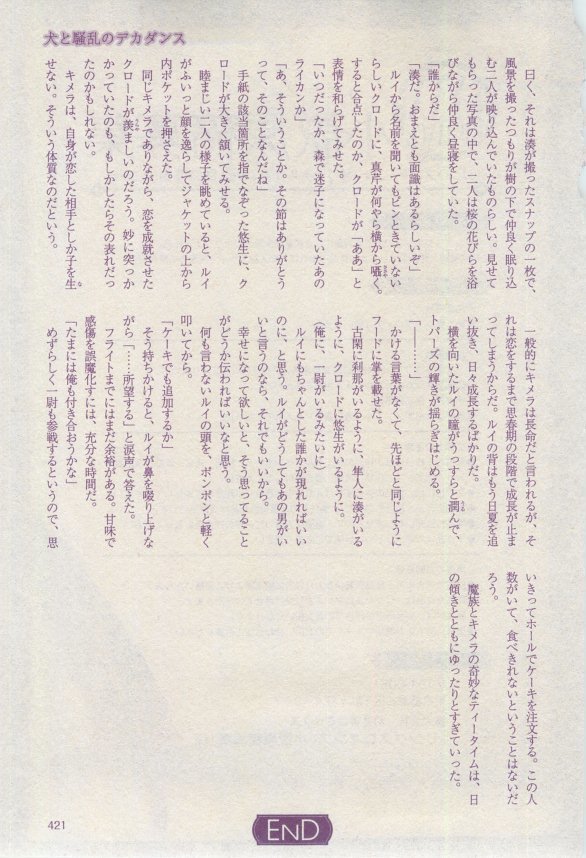 犬と騒乱のデカダンス
曰く、それは湊が撮ったスナップの一枚で、
風景を撮ったつもりが樹の下で仲良く眠り込
む二人が映り込んでいたものらしい。見せて
もらった写真の中で、二人は桜の花びらを浴
びながら仲良く昼寝をしていた。
「誰からだ」
「湊だ。おまえとも面識はあるらしいぞ」
ルイから名前を聞いてもピンときていない
らしいクロードに、真芹が何やら横から囁く。
すると合点したのか、クロードが「ああ」と
表情を和らげてみせた。
「いつだったか、森で迷子になっていたあの
ライカンか」
「あ、そういうことか。その節はありがとう
って、そのことなんだね」
手紙の該当箇所を指でなぞった悠生に、ク
ロードが大きく頷いてみせる。
睦まじい二人の様子を眺めていると、ルイ
がふいっと顔を逸らしてジャケットの上から
内ポケットを押さえた。
同じキメラでありながら、恋を成就させた
クロードが羨ましいのだろう。妙に突っか
かっていたのも、もしかしたらその表れだっ
たのかもしれない。
キメラは、自身が恋した相手としか子を生
せない。そういう体質なのだという。
一般的にキメラは長命だと言われるが、そ
れは恋をするまで思春期の段階で成長が止ま
ってしまうからだ。ルイの背はもう日夏を追
い抜き、日々成長するばかりだ。
横を向いたルイの瞳がうっすらと潤んで、
トパーズの輝きが揺らぎはじめる。
「――……」
かける言葉がなくて、先ほどと同じように
フードに掌を載せた。
古閑に刹那がいるように、隼人に湊がいる
ように、クロードに悠生がいるように。
（俺に、一尉がいるみたいに）
ルイにもちゃんとした誰かが現れればいい
のに、と思う。ルイがどうしてもあの男がい
いと言うのなら、それでもいいから。
幸せになって欲しいと、そう思ってること
がどうか伝わればいいなと思う。
何も言わないルイの頭を、ポンポンと軽く
叩いてから。
「ケーキでも追加するか」
そう持ちかけると、ルイが鼻を啜り上げな
がら「……所望する」と涙声で答えた。
フライトまでにはまだ余裕がある。甘味で
感傷を誤魔化すには、充分な時間だ。
「たまには俺も付き合おうかな」
めずらしく一尉も参戦するというので、思
いきってホールでケーキを注文する。この人
数がいて、食べきれないということはないだ
ろう。
魔族とキメラの奇妙なティータイムは、日
の傾きとともにゆったりとすぎていった。
END
421